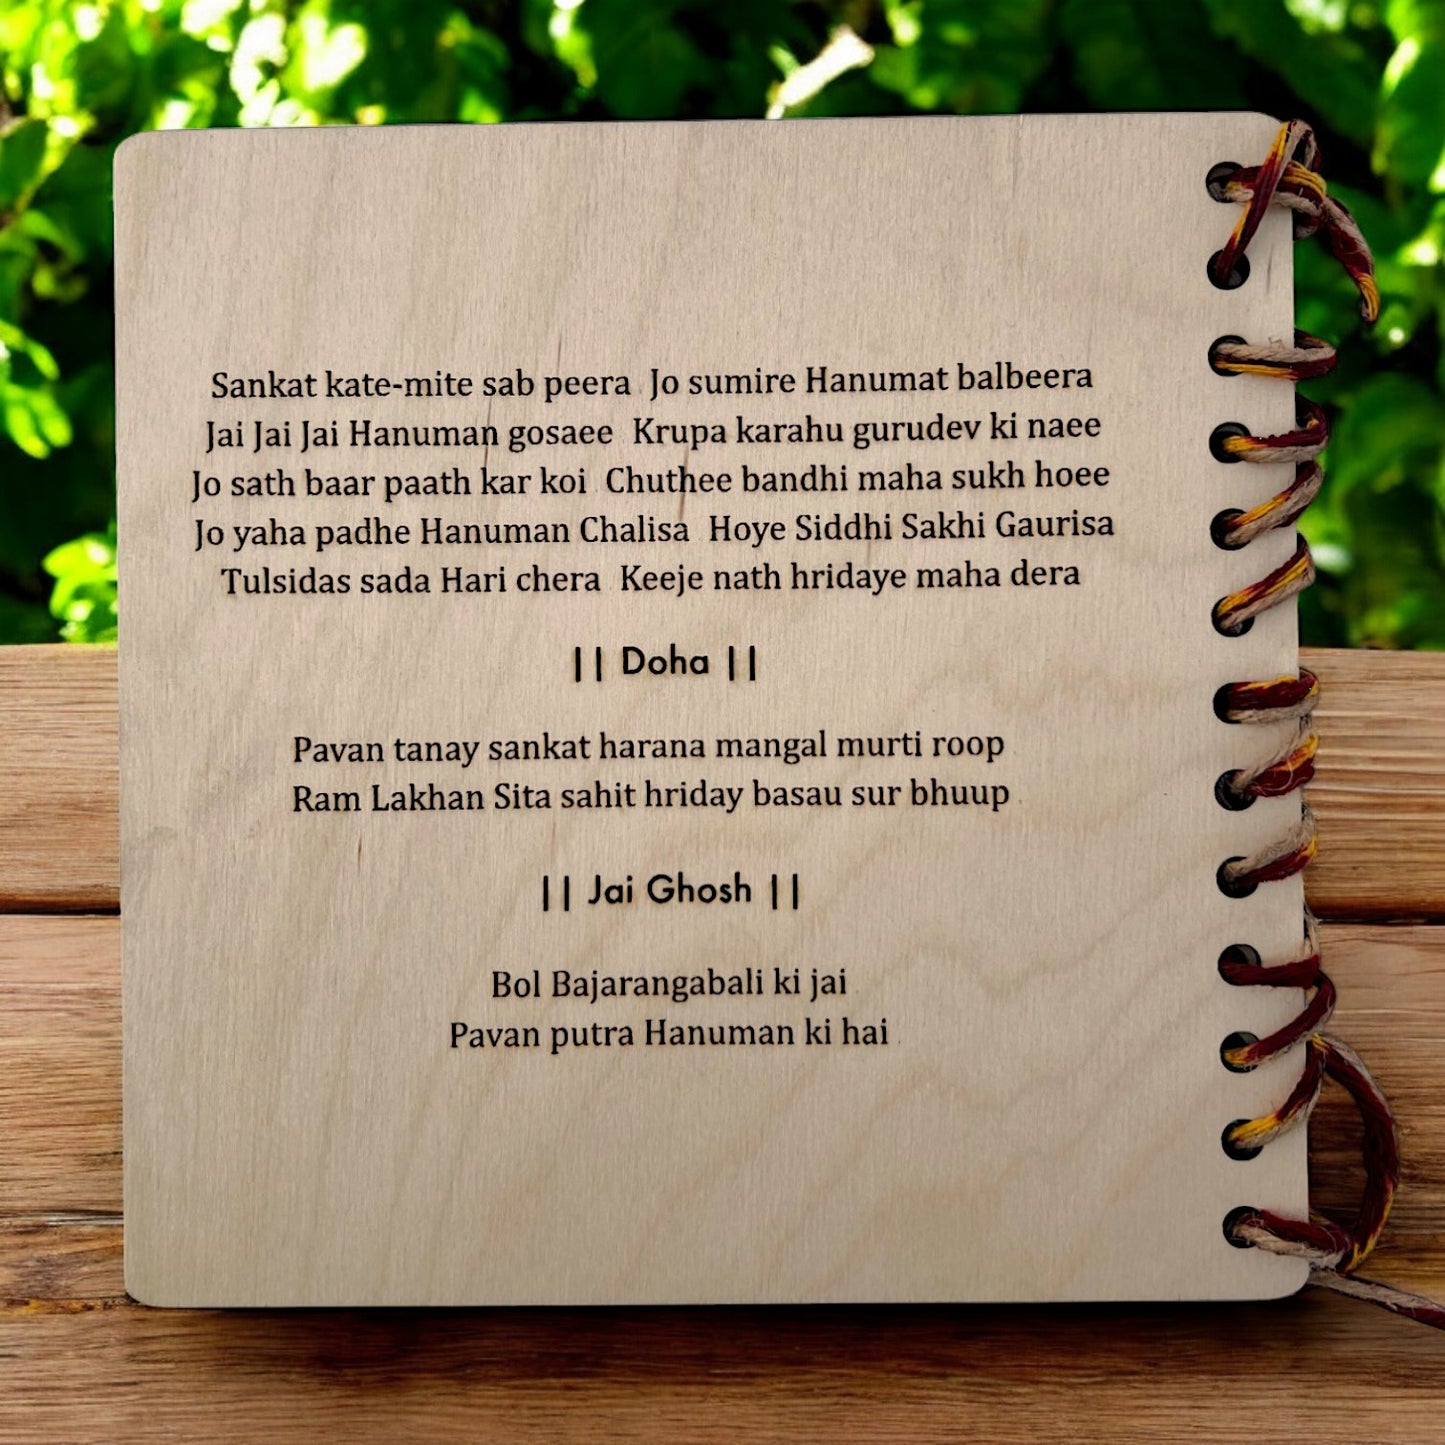 Sankat kate-mite sab peera Jo sumire Hanumat balbeera
Jai Jai Jai Hanuman gosaee Krupa karahu gurudev ki naee
Jo sath baar paath kar koi Chuthee bandhi maha sukh hoee
Jo yaha padhe Hanuman Chalisa Hoye Siddhi Sakhi Gaurisa
Tulsidas sada Hari chera Keeje nath hridaye maha dera
|| Doha ||
Pavan tanay sankat harana mangal murti roop
Ram Lakhan Sita sahit hriday basau sur bhuup
|| Jai Ghosh ||
Bol Bajarangabali ki jai
Pavan putra Hanuman ki hai